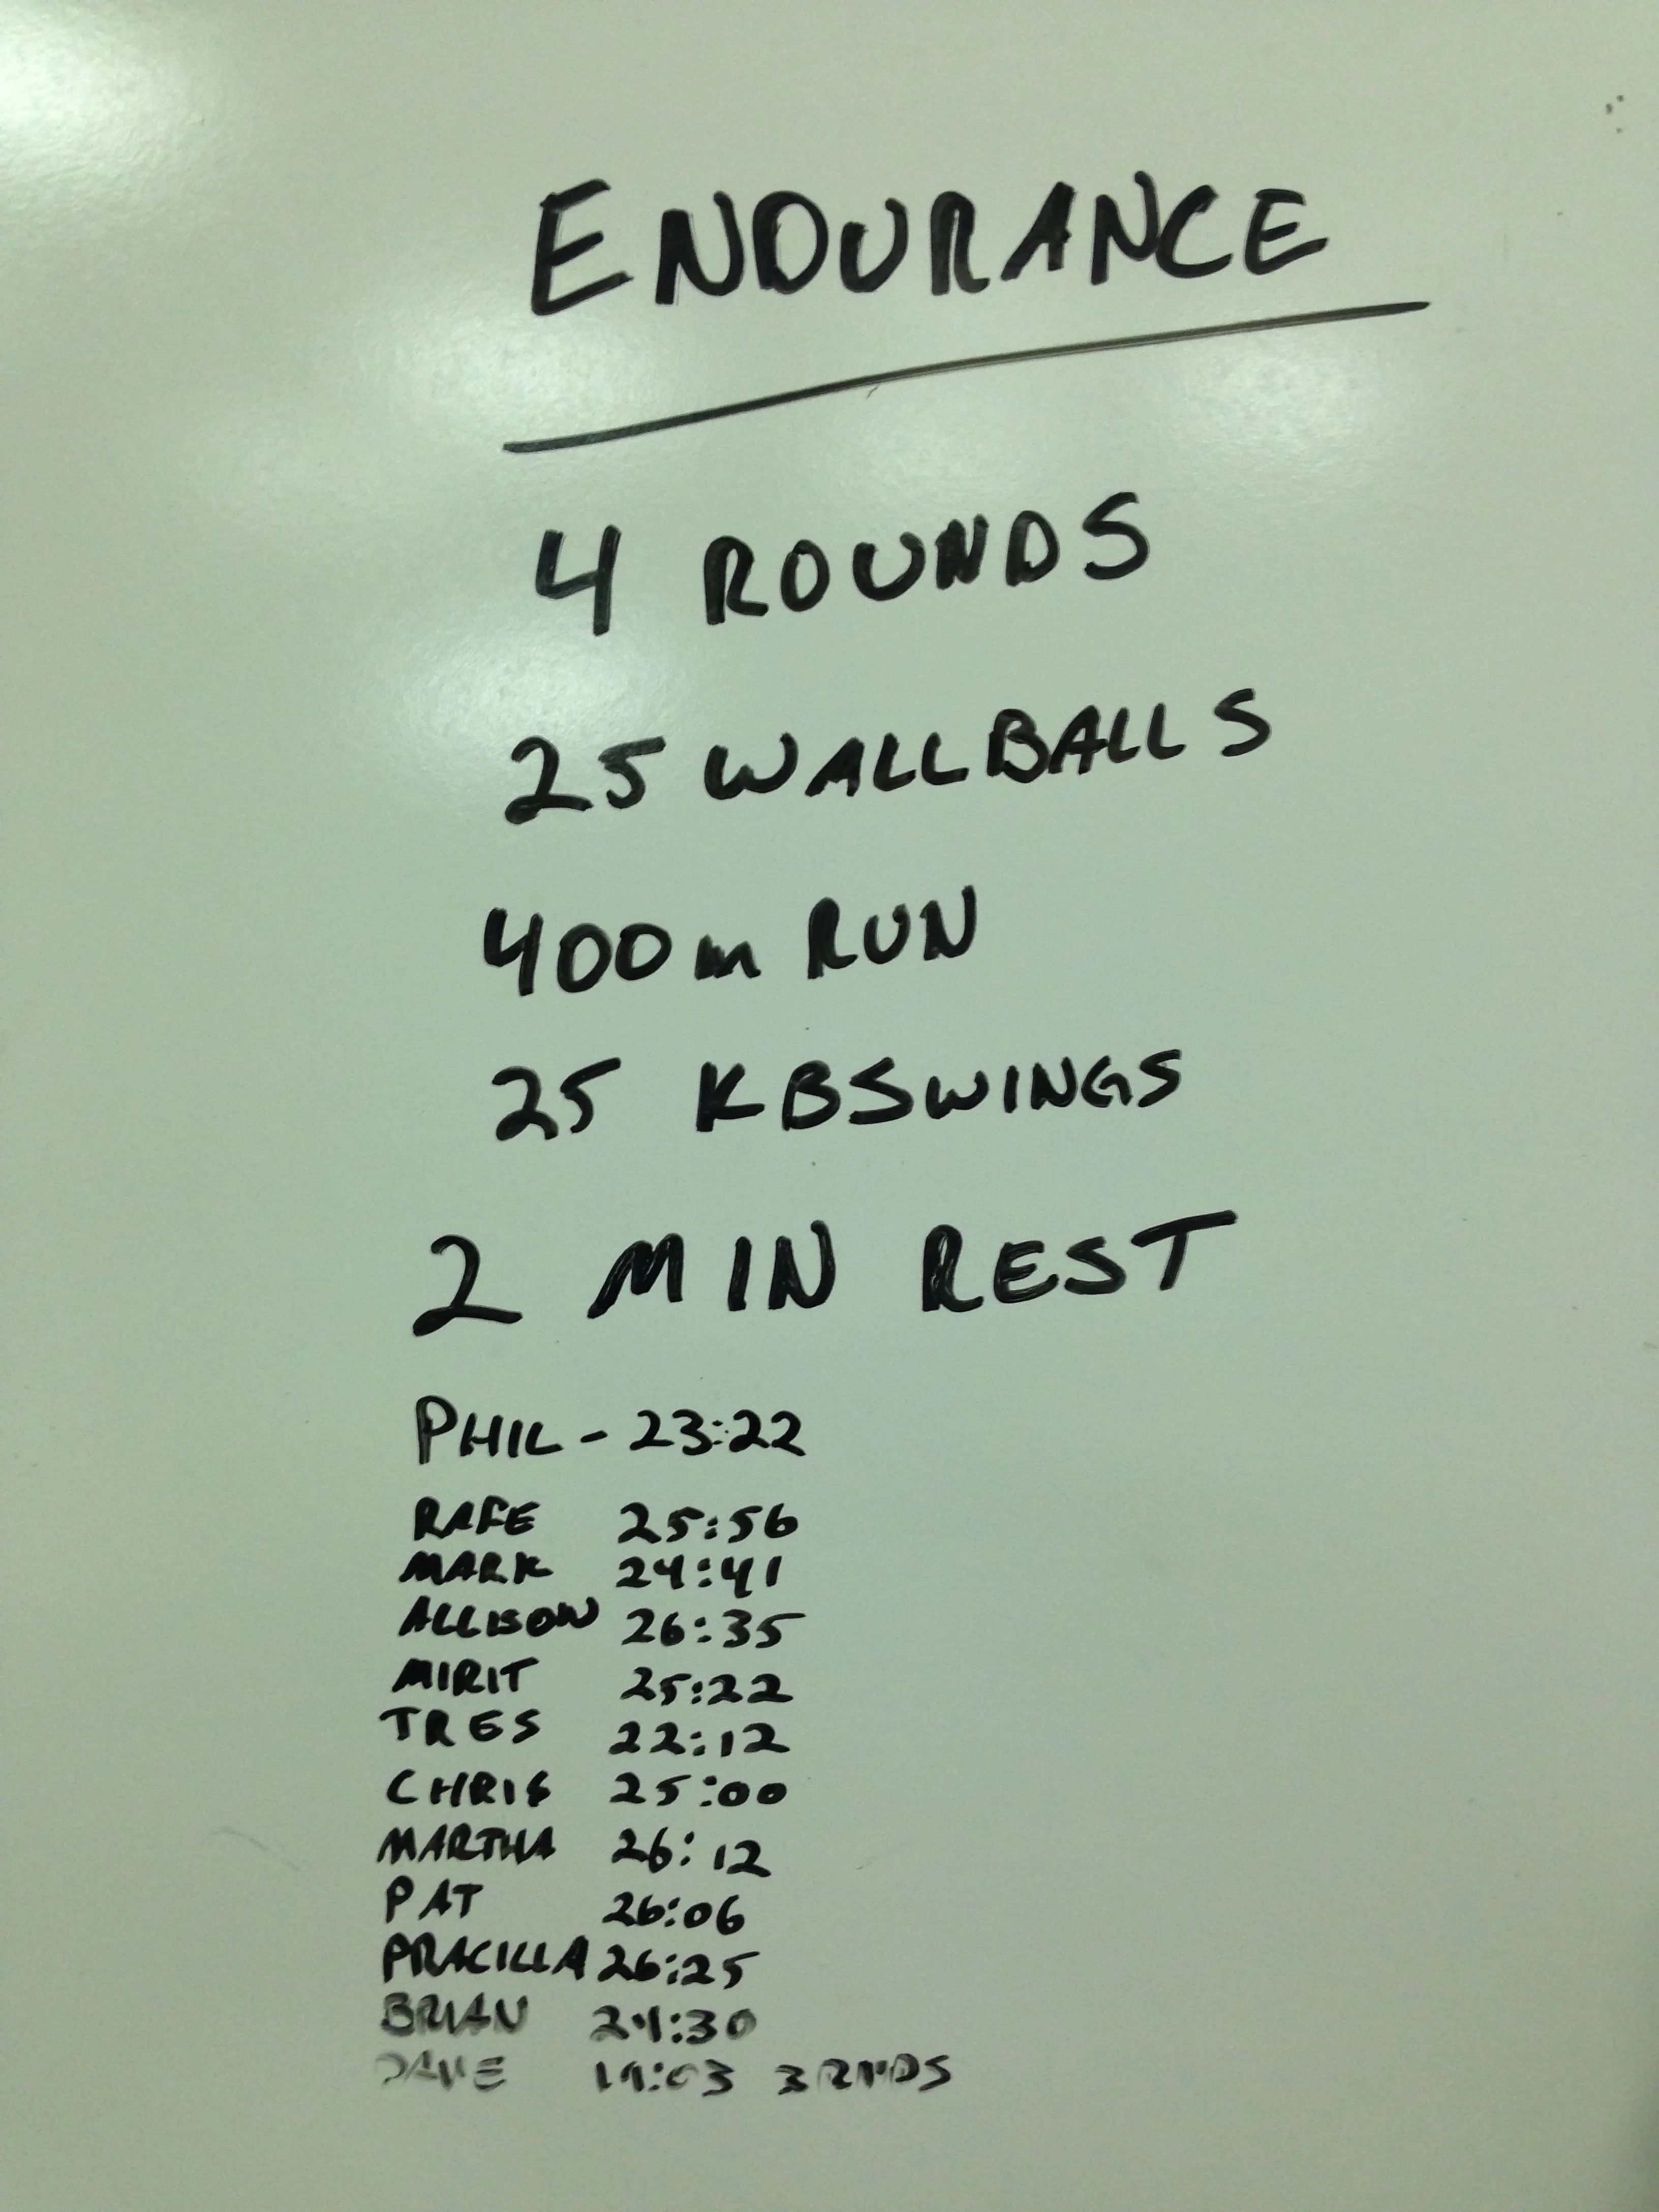 ENDURANCE
4 ROUNDS
25 WALLBALLS
400m RUN
25 KBSWINGS
2 MIN REST
PHIL - 23:22
RAFE 25:56
MARK 24:41
ALLISON 26:35
MIRIT 25:22
TRES 22:12
CHRIS 25:00
MARTHA 26:12
PAT 26:06
PRACILLA 26:25
BRIAN 24:30
DAVE 3 RNDS